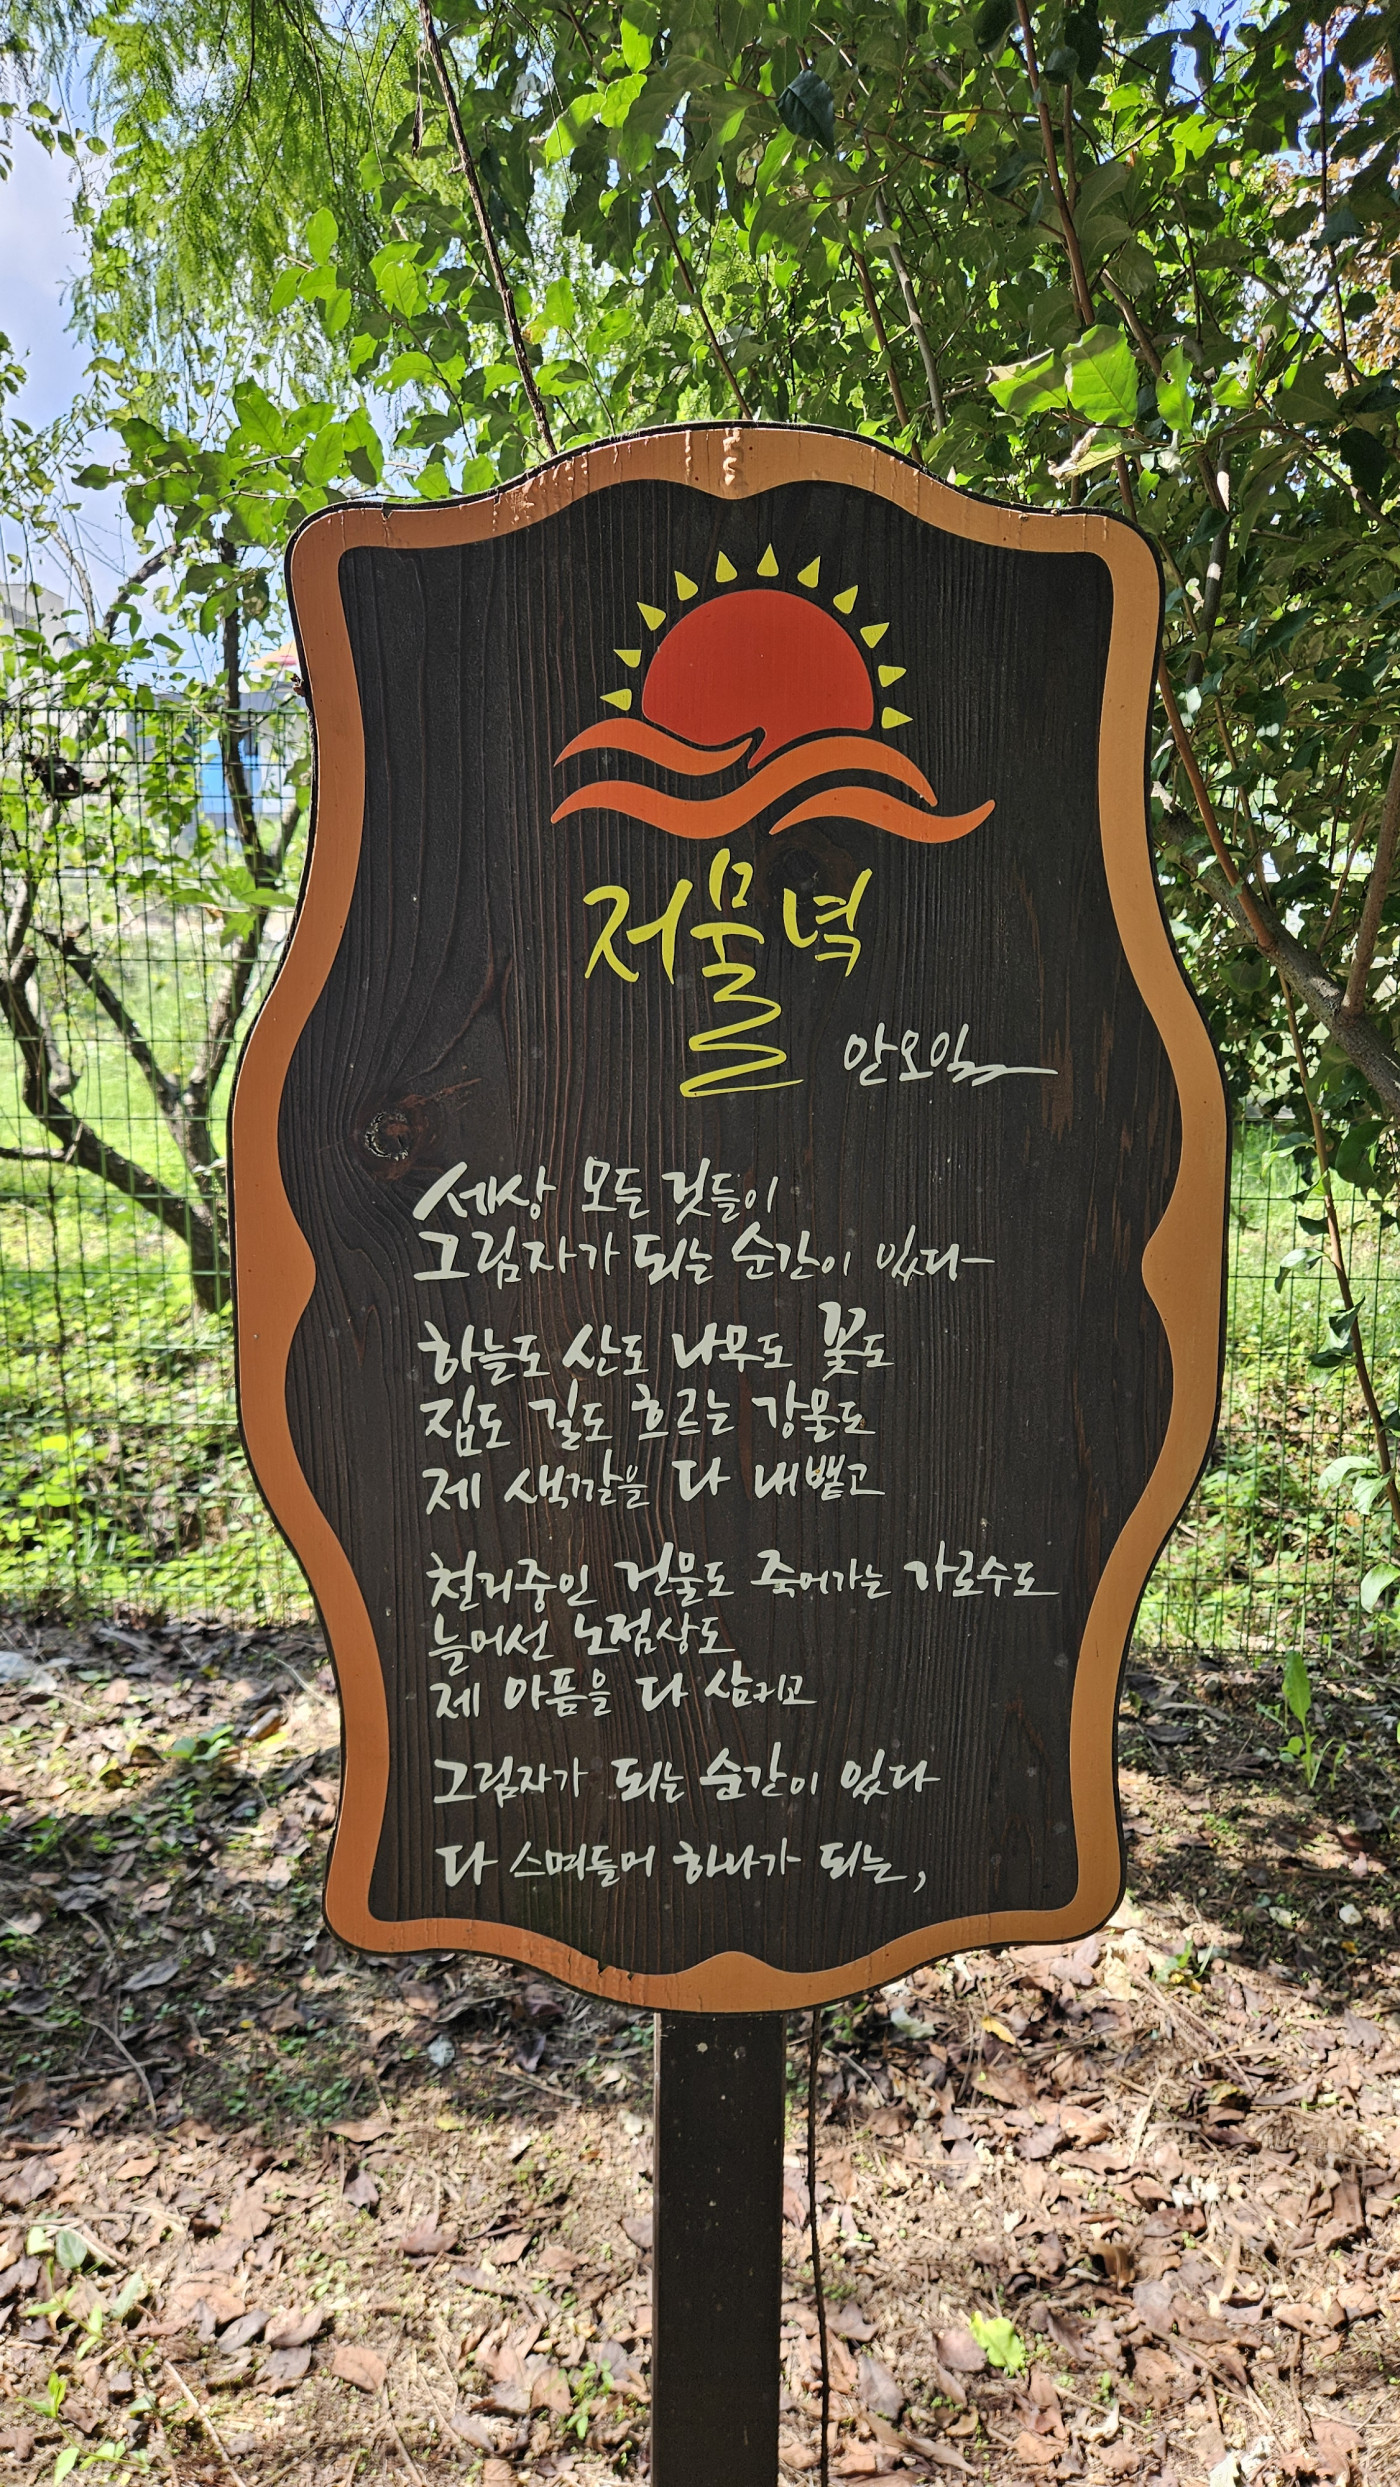 저물녘
안오일
세상 모든 것들이
그림자가 되는 순간이 있다
하늘도 산도 나무도 꽃도
집도 길도 흐르는 강물도
제 색깔을 다 내뱉고
철거중인 건물도 죽어가는 가로수도
늘어선 노점상도
제 아픔을 다 삼키고
그림자가 되는 순간이 있다
다 스며들어 하나가 되는,